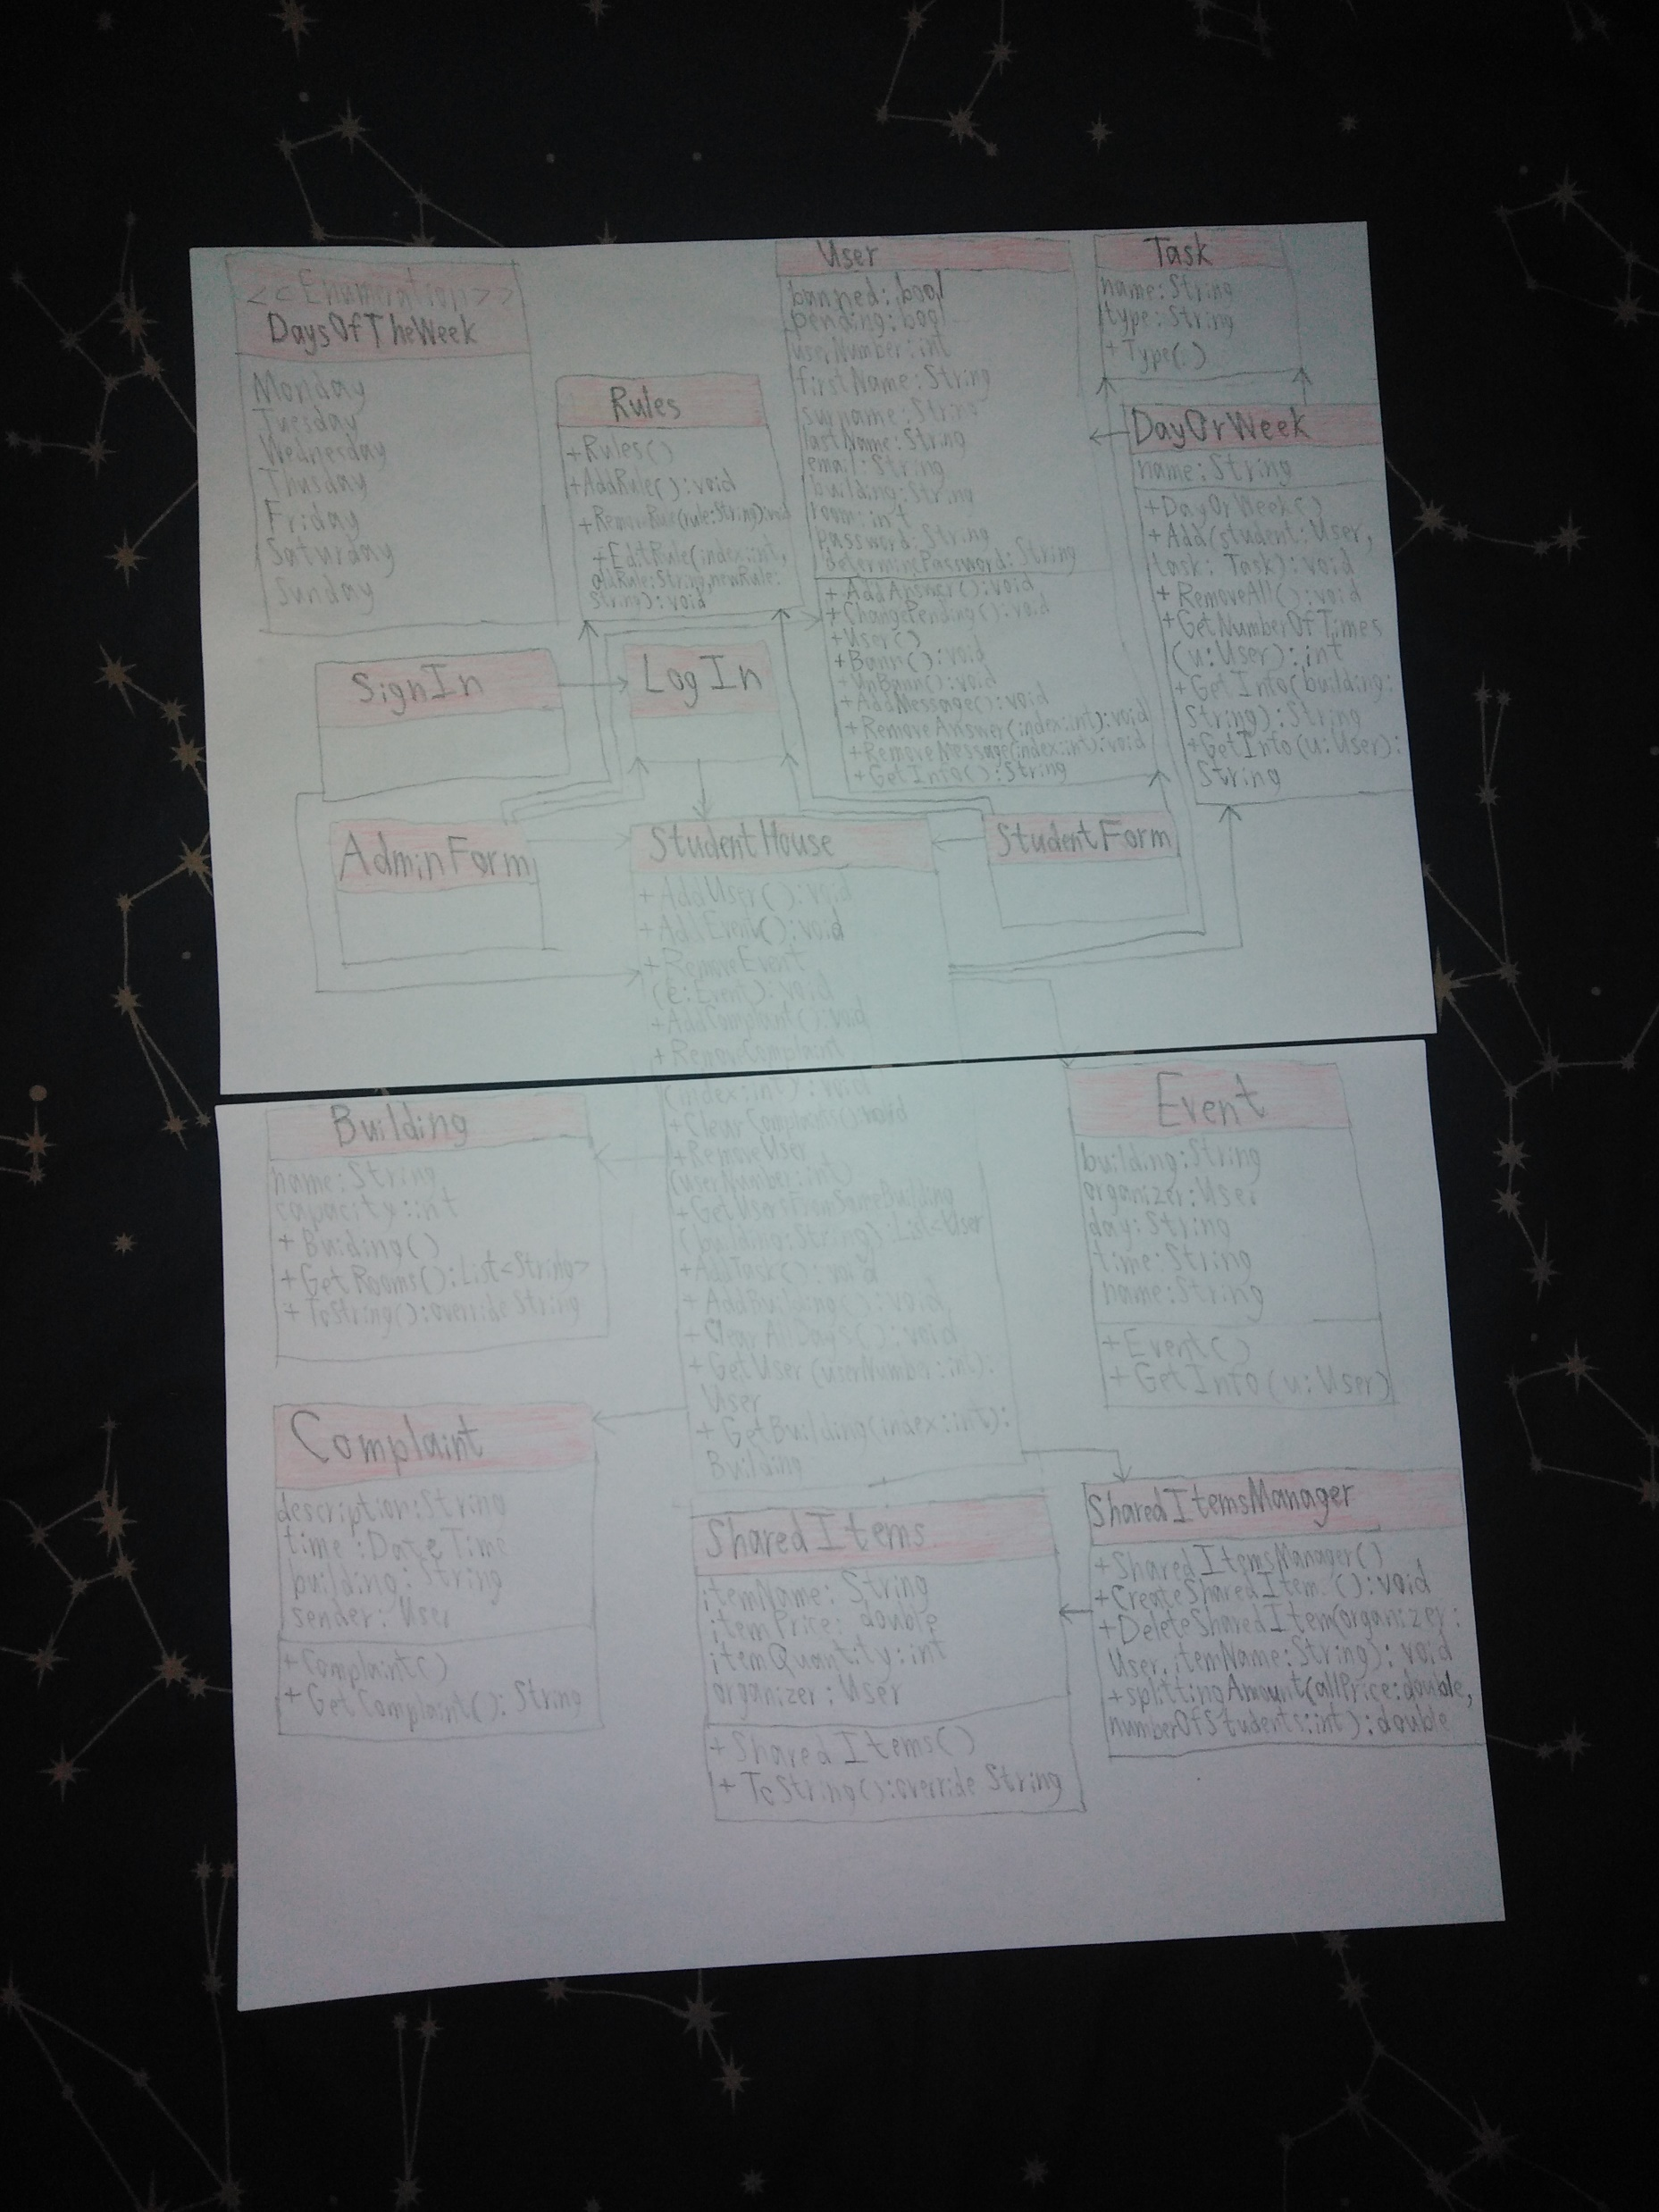 <<Enumeration>>
DaysOfTheWeek
Monday
Tuesday
Wednesday
Thusday
Friday
Saturday
Sunday
Rules
+Rules()
+AddRule():void
+RemoveRule(rule:String):void
+EditRule(index:int,
oldRule:String,newRule:
String):void
User
banned:bool
pending:bool
userNumber:int
firstName:String
surname:String
lastName:String
email:String
building:String
room:int
password:String
determinePassword:String
+AddAnswer():void
+ChangePending():void
+User()
+Bann():void
+UnBann():void
+AddMessage():void
+RemoveAnswer(index:int):void
+RemoveMessage(index:int):void
+GetInfo():String
Task
name:String
type:String
+Type()
DayOrWeek
name:String
+DayOrWeek()
+Add(student:User,
task:Task):void
+RemoveAll():void
+GetNumberOfTimes
(u:User):int
+GetInfo(building:
String):String
+GetInfo(u:User):
String
SignIn
LogIn
AdminForm
StudentHouse
+AddUser():void
+AddEvent():void
+RemoveEvent
(e:Event):void
+AddComplaint():void
+RemovComplaint
(index:int):void
+ClearComplaints():void
+RemoveUser
(userNumber:int)
+GetUsersFromSameBuilding
(building:String):List<User
+AddTask():void
+AddBuilding():void
+ClearAllDays():void
+GetUser(userNumber:int):
User
+GetBuilding(index:int):
Building
StudentForm
Building
name:String
capacity:int
+Building()
+GetRooms():List<String>
+ToString():override String
Event
building:String
organizer:User
day:String
time:String
name:String
+Event()
+GetInfo(u:User)
Complaint
description:String
time:DateTime
building:String
sender:User
+Complaint()
+GetComplaint():String
SharedItems
itemName:String
itemPrice:double
itemQuantity:int
organizer:User
+SharedItems()
+ToString():override String
SharedItemsManager
+SharedItemsManager()
+CreateSharedItem():void
+DeleteSharedItem(organizer:
User,itemName:String):void
+splittingAmount(allPrice:double,
numberOfStudents:int):double